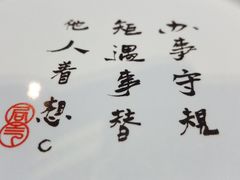 办事守规
矩遇事替
他人着想。